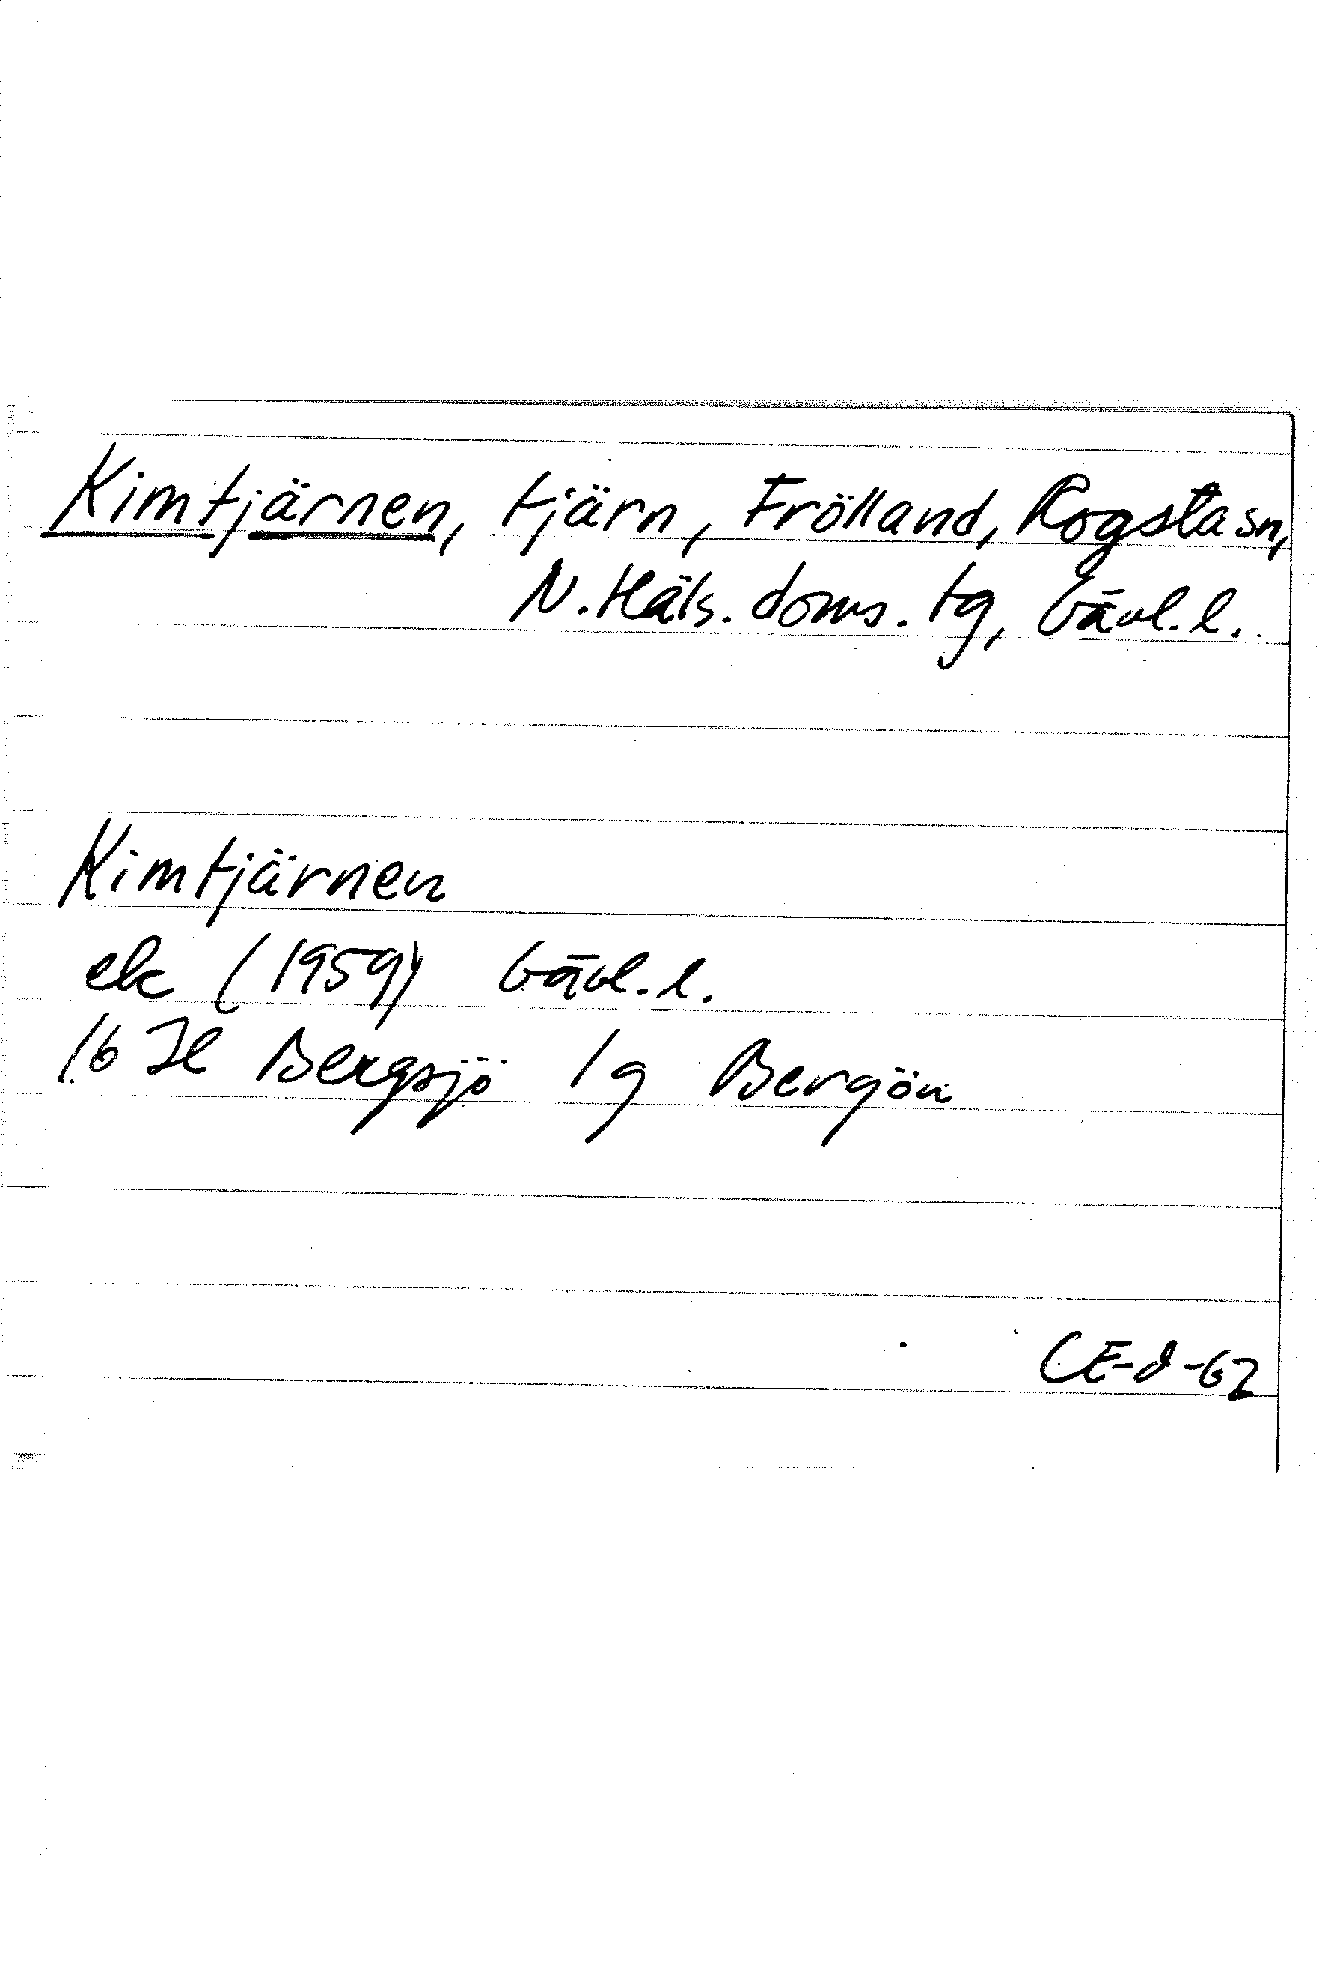 Kimtjärnen, tjärn, Frölland, Rogsta sn,
N. Häls. doms. tg, Gävl. l.
Kimtjärnen
ek (1959) Gävl. l.
16 H Bergsjö 1g Bergön
CE-d-62